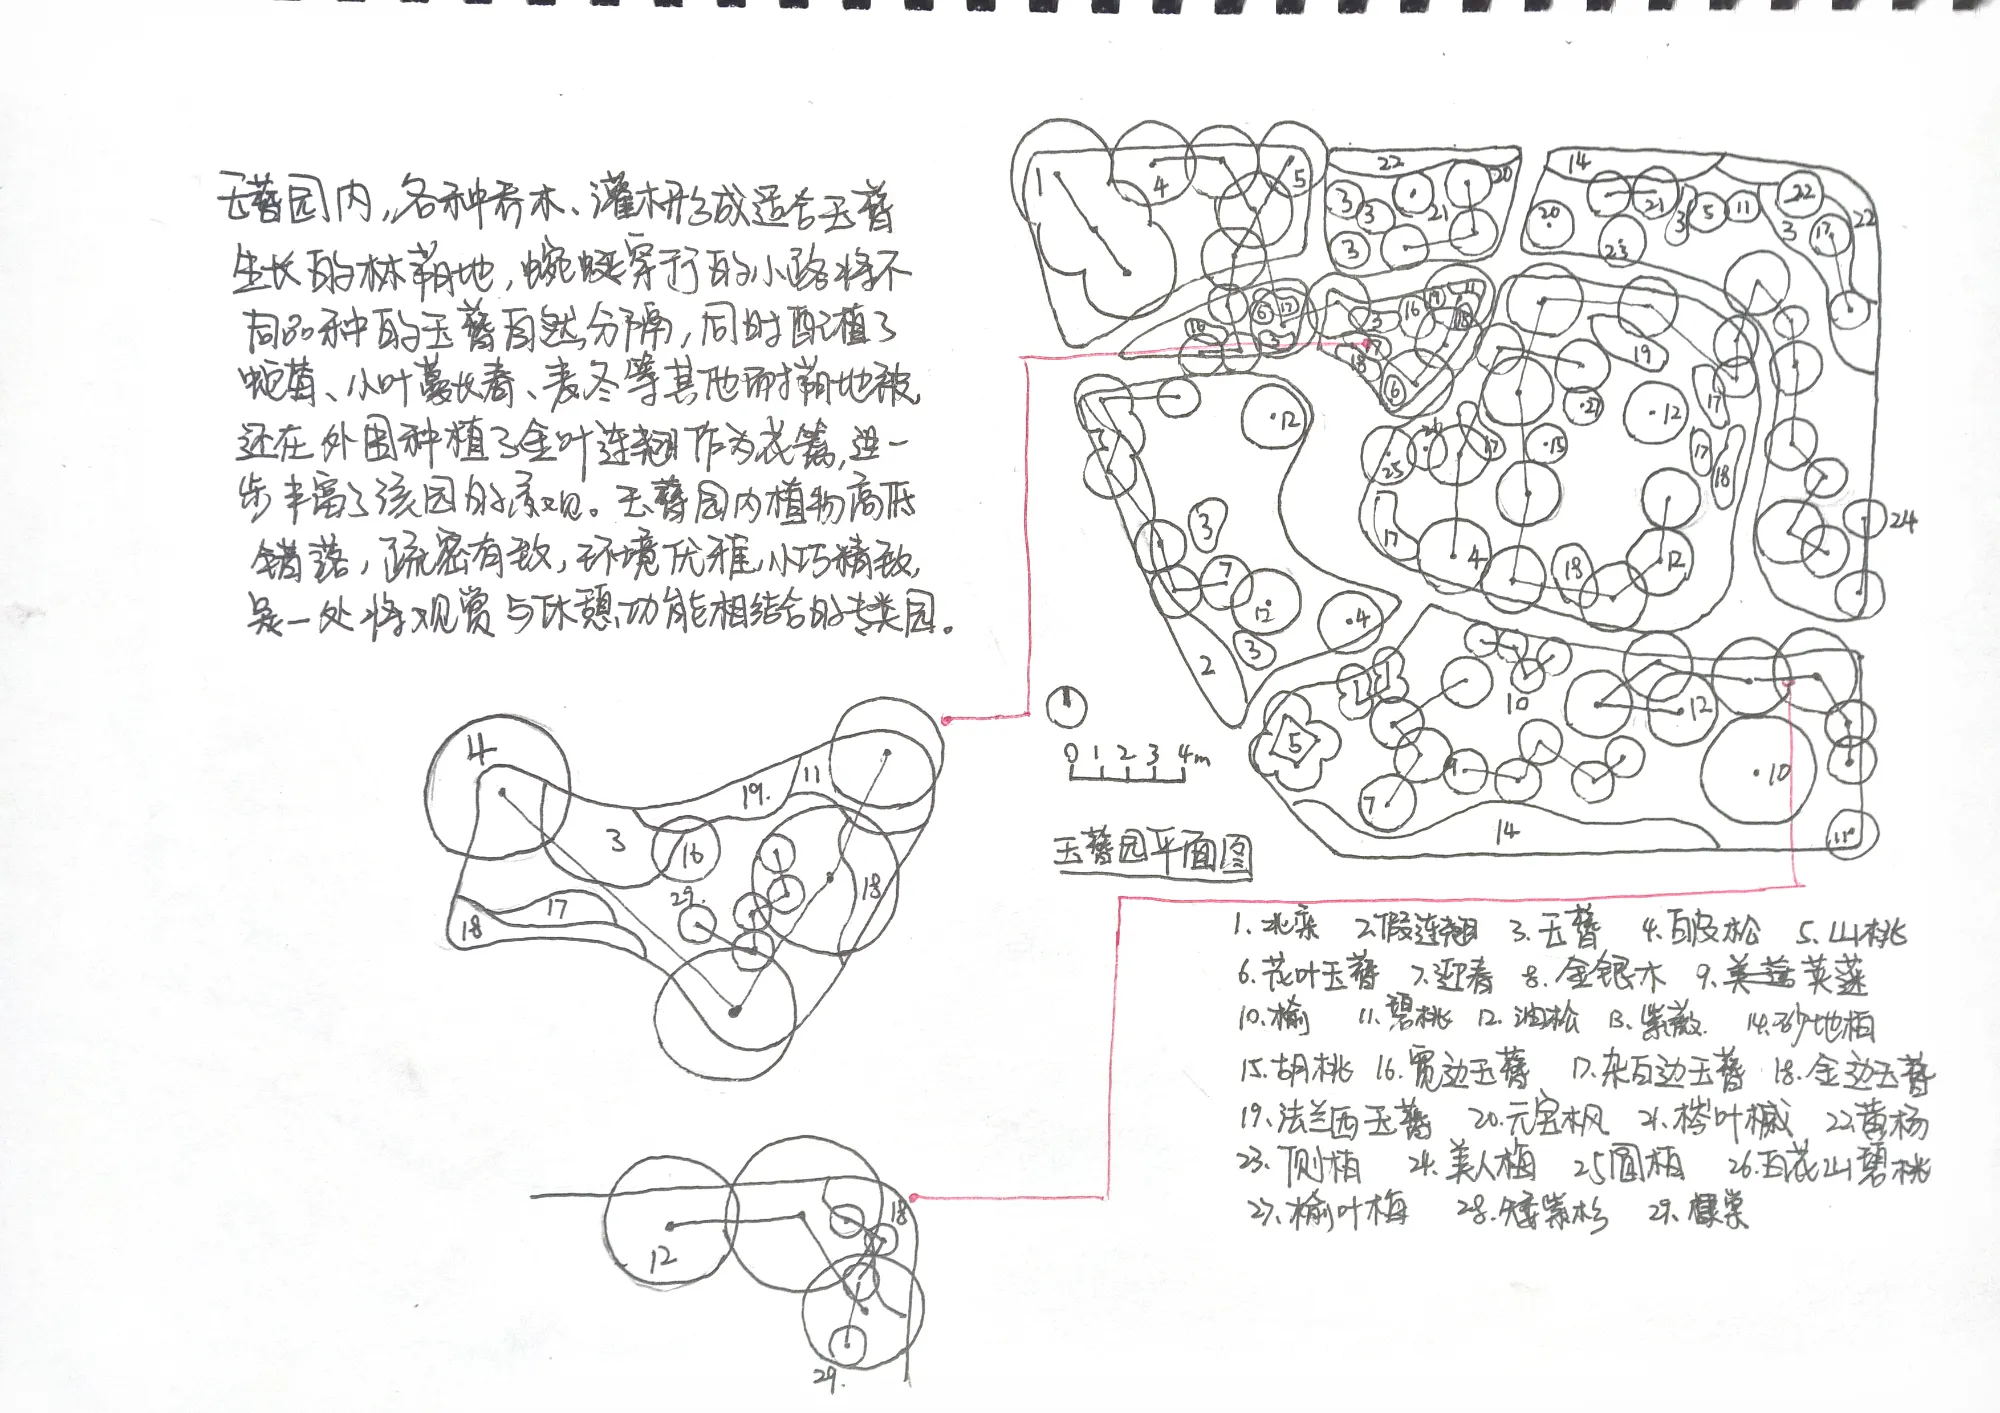 玉簪园内，各种乔木、灌木形成适合玉簪
生长的林荫地，蜿蜒穿行的小路将不
同品种的玉簪自然分隔，同时配植了
蛇莓、小叶蔓长春、麦冬等其他耐荫地被，
还在外围种植了金叶连翘作为花篱，进一
步丰富了该园的景观。玉簪园内植物高低
错落，疏密有致，环境优雅，小巧精致，
是一处将观赏与休憩功能相结合的专类园。
1 4 5 22 3 3 3 21 20
14 20 21 23 3 5 11 22 3 17 22
16 6 17 3 3 16 19 11 18 7 18 6
19 17 12 27 15 17 18 25 17 17 4 18 12
3 12 3 7 12 3 4 2
24
1 1 5 7 9 10 12 10 14 11
0 1 2 3 4m
玉簪园平面图
4 19. 11 3 16 18 29. 17 18
12 18 29.
1.北栾 2.假连翘 3.玉簪 4.白皮松 5.山桃
6.花叶玉簪 7.迎春 8.金银木 9.荚蒾
10.榆 11.碧桃 12.油松 13.紫薇. 14.砂地柏
15.胡桃 16.宽边玉簪 17.杂白边玉簪 18.金边玉簪
19.法兰西玉簪 20.元宝枫 21.梣叶槭 22.黄杨
23.侧柏 24.美人梅 25圆柏 26.白花山碧桃
27.榆叶梅 28.矮紫杉 29.棣棠